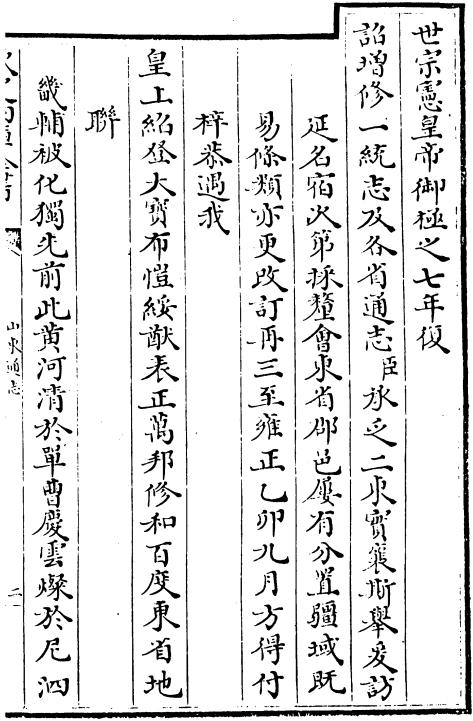 世宗憲皇帝御極之七年復
詔增修一統志及各省通志臣承乏二東實襄斯舉爰訪
延名宿次第採釐會東省郡邑屢有分置疆域既
易條類亦更改訂再三至雍正乙卯九月方得付
梓恭遇我
皇上紹登大寶布愷綏猷表正萬邦修和百度東省地
聯
畿輔被化獨先前此黄河清於單曹慶雲燦於尼泗
山東通志
二